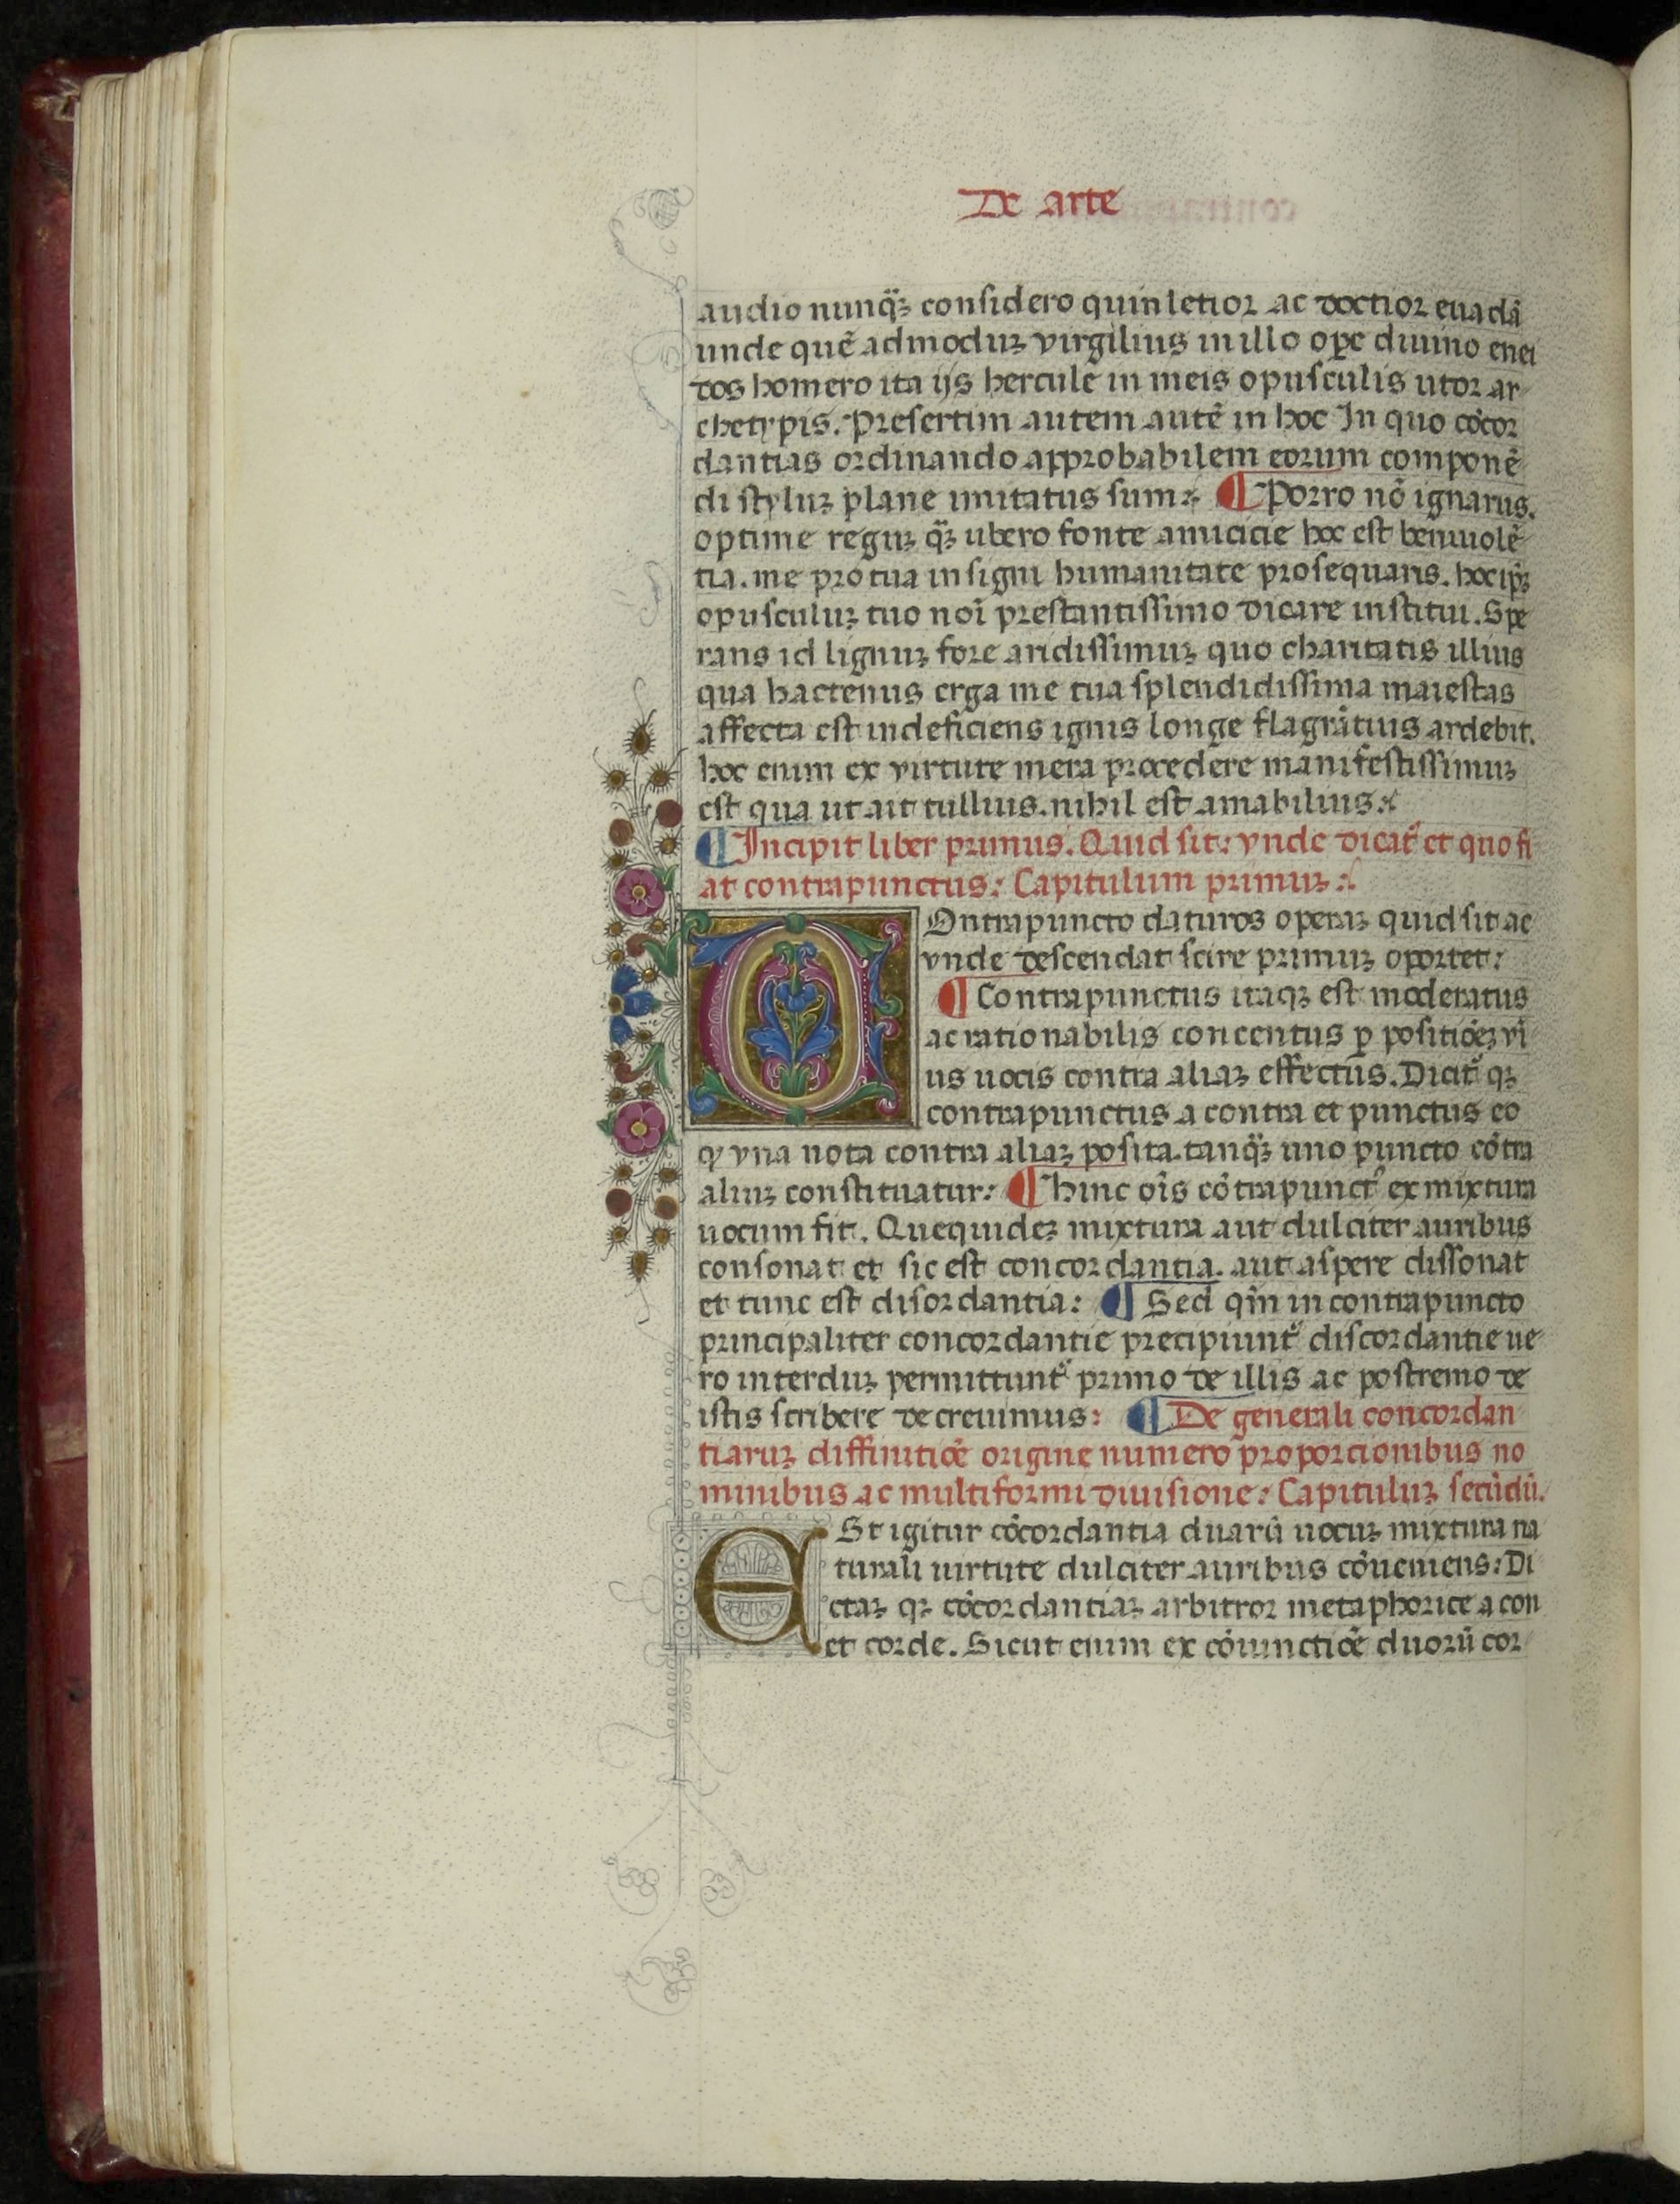 De arte
audio nunq̃ꝫ considero quin letior ac doctior euadã
unde quẽ admoduꝫ virgilius in illo oꝑe diuino enei
dos homero ita ijs hercule in meis opusculis utor ar
chetypis. Presertim autem autẽ in hoc In quo cõcor
dantias ordinando approbabilem eorum componẽ
di styluꝫ plane imitatus sum: ¶ Porro nõ ignarus.
optime reguꝫ q̃ꝫ ubero fonte amicicie hoc est beniuolẽ
tia. me pro tua insigni humanitate prosequaris. hoc ip̃ꝫ
opusculuꝫ tuo noĩ prestantissimo dicare institui. Spe
rans id lignuꝫ fore aridissimuꝫ quo charitatis illius
qua hactenus erga me tua splendidissima maiestas
affecta est indeficiens ignis longe flagrãtius ardebit.
hoc enim ex virtute mera procedere manifestissimuꝫ
est qua ut ait tullius. nihil est amabilius:
¶ Incipit liber primus. Quid sit: vnde dicat̃ et quo fi
at contrapunctus: Capitulum primuꝫ:
COntrapuncto daturos operaꝫ quid sit ac
vnde descendat scire primuꝫ oportet:
¶ Contrapunctus itaqꝫ est moderatus
ac rationabilis concentus ꝑ positiõeꝫ vni
us uocis contra aliaꝫ effectus. Dicit̃ qꝫ
contrapunctus a contra et punctus eo
ꝙ vna nota contra aliaꝫ posita. tanq̃ꝫ uno puncto cõtra
aliuꝫ constituatur: ¶ Hinc oĩs cõtrapunct᷒ ex mixtura
uocum fit. Quequideꝫ mixtura aut dulciter auribus
consonat et sic est concordantia. aut aspere dissonat
et tunc est disordantia: ¶ Sed qm̃ in contrapuncto
principaliter concordantie precipiunt̃ discordantie ue
ro interduꝫ permittunt̃ primo de illis ac postremo de
istis scribere decreuimus: ¶ De generali concordan
tiaruꝫ diffinitiõe origine numero proporcionibus no
minibus ac multiformi diuisione: Capituluꝫ secũdũ.
ESt igitur cõcordantia duarũ uocuꝫ mixtura na
turali uirtute dulciter auribus cõueniens: Di
ctaꝫ qꝫ cõcordantiaꝫ arbitror metaphorice a con
et corde. Sicut enim ex cõiunctiõe duorũ cor